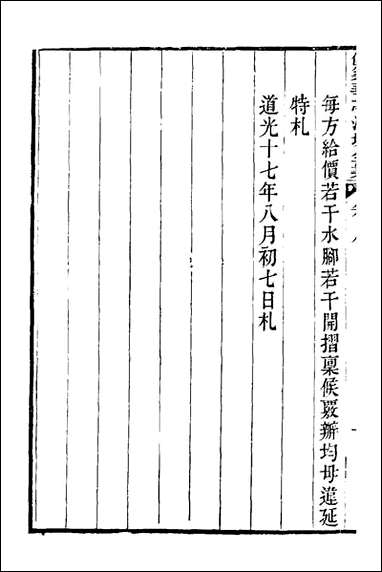 每方給價若干水腳若干開摺稟候覈辦均毋違延
特札
道光十七年八月初七日札